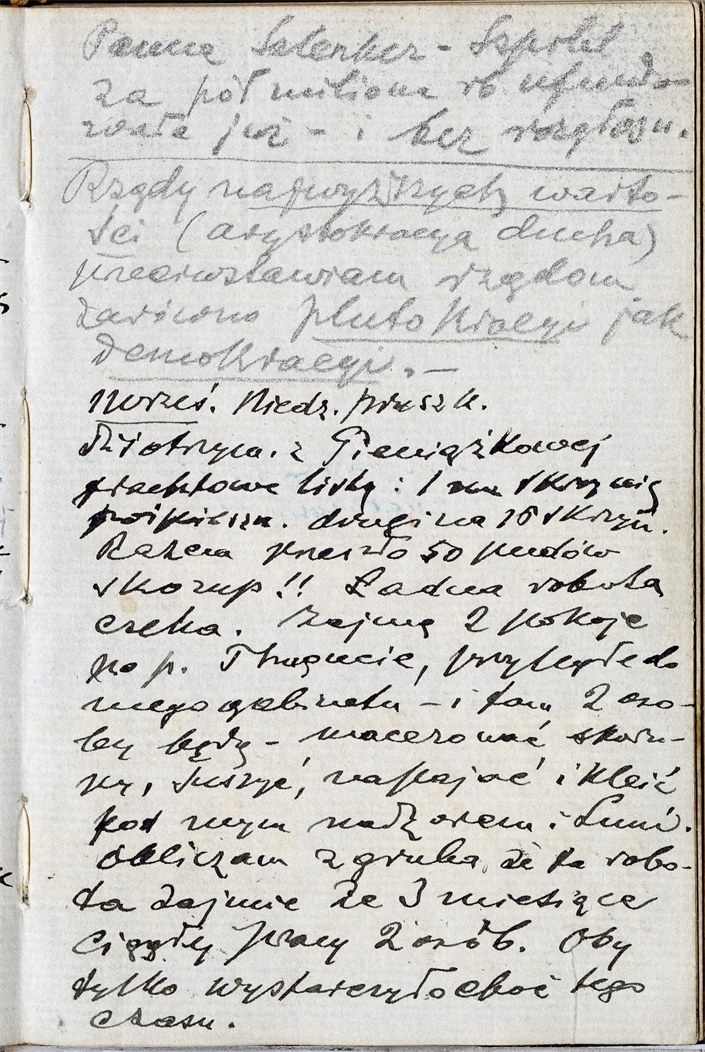 Panna Szlenker - Szpital
za pół miliona rb ufundo-
wała już - i bez rozgłosu.
Rządy najwyższych warto-
ści (arystokracya ducha)
przeciwstawiam rządom
zarówno plutokracyi jak
demokracyi. —
Wrześ. Niedz. Pruszk.
Dziś otrzym. z Pieniążkowej
frachtowe listy: 1 na skrzynię
drugi na 18 skrzyń.
Razem przeszło 50 pudów
skorup!! Ładna robota
czeka. Zajmę 2 pokoje
po p. Thugucie, przyległe do
mego gabinetu - i tam 2 oso-
by będą - macerować skoru-
py, suszyć, napajać i kleić
pod mym nadzorem i Luni.
Obliczam z gruba, że ta robo-
ta zajmie ze 3 miesiące
ciągłej pracy 2 osób. Oby
tylko wystarczyło choć tego
czasu.